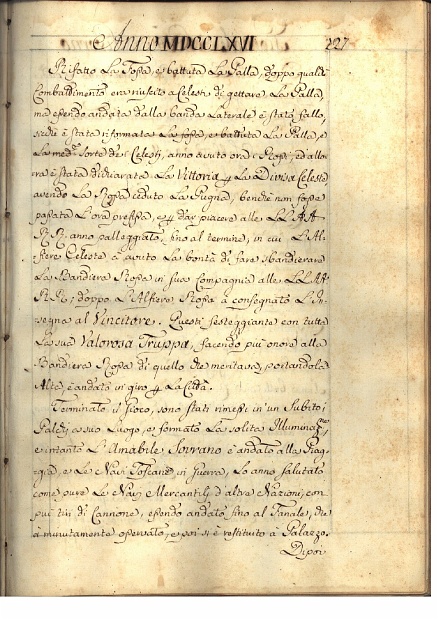 Anno MDCCLXVI 227
Rifatto La Fossa, e battuta La Palla, doppo qualche
Combaldimento era riuscito a Celesti di gettare La Palla,
ma essendo andata dalla banda Laterale è stata fallo,
si è stata riformata La fossa, e battuta La Palla, e
La med:ma sorte de i Celesti, anno avuto ora i Rossi, ed allo,
ra è stata dichiarata La Vittoria p La Divisa Celeste,
avendo La Rossa ceduto La Pugna, benchè non fosse
passata L'ora prefissa, e p dar piacere alle LL. AA.
RR: anno palleggiato, fino al termine, in cui L'Al,
fiere Celeste à avuto La bontà di fare sbandierare
La Bandiera Rossa in sua Compagnia alle LL. AA
RR; doppo L'Alfiere Rosso à consegnato L'in,
segna al Vincitore. Questi festeggiante con tutta
La sua Valorosa Truppa, facendo più onore alla
Bandiera Rossa di quello che meritava, portandola
Alta, è andato in giro p La Città.
Terminato il Gioco, sono stati rimessi in un Subito i
Palchi a suo Luogo, e formato La solita Illuminaz:ne,
e intanto L'Amabile Sovrano è andato alla Spiag,
gia, e Le Navi Toscane in Guerra, Lo anno salutato
come pure Le Navi Mercantili d'altre Nazioni, con
più tiri di Cannone, essendo andato fino al Fanale, che
à minutamente osservato, e poi si è restituito à Palazzo.
Dipoi